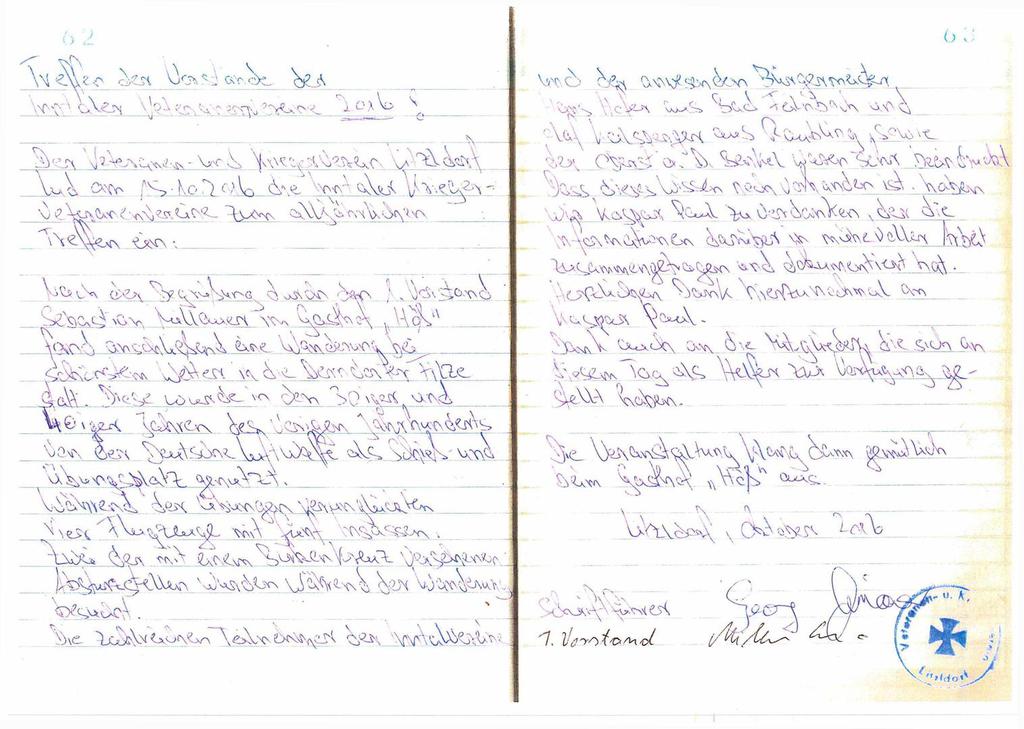 62
Treffen der Vorstände der
Inntaler Veteranenvereine 2016 !
Der Veteranen- und Kriegerverein Litzldorf
lud am 15.10.2016 die Inntaler Krieger-
Veteranenvereine zum alljährlichen
Treffen ein:
Nach der Begrüßung durch den 1. Vorstand
Sebastian im Gasthof „Höß"
fand anschließend eine Wanderung bei
schönstem Wetter in die Derndorfer Filze
statt. Diese wurde in den 30iger und
40iger Jahren des vorigen Jahrhunderts
von der Deutsche Luftwaffe als Schieß- und
Übungsplatz genutzt.
Während der Übungen verunglückten
vier Flugzeuge mit fünf Insassen.
Zwei der mit einem Birkenkreuz versehenen
Absturzstellen wurden während der Wanderung
besucht.
Die zahlreichen Teilnehmer der Inntalvereine
63
und der anwesenden Bürgermeister
Hans Hofer aus Bad Feilnbach und
Olaf Kalsperger aus Raubling, sowie
der Oberst a.D. Benkel waren sehr beeindruckt
Dass dieses Wissen noch vorhanden ist. haben
wir Kaspar Paul zu verdanken, der die
Informationen darüber in mühevoller Arbeit
zusammengetragen und dokumentiert hat.
Herzlichen Dank hierzu nochmal an
Kaspar Paul.
Dank auch an die Mitglieder, die sich an
diesem Tag als Helfer zur Verfügung ge-
stellt haben.
Die Veranstaltung klang dann gemütlich
beim Gasthof „Höß" aus.
Litzldorf, Oktober 2016
Schriftführer Georg
1. Vorstand
Veteranen- u. K.
Litzldorf